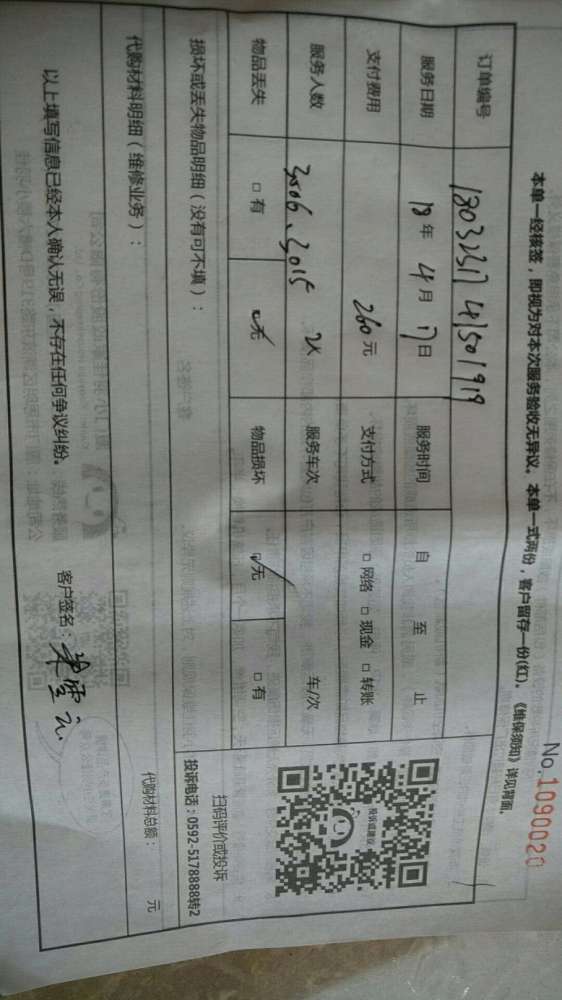 No.1090020
本单一经核签，即视为对本次服务验收无异议。本单一式两份，客户留存一份(红)。《维保须知》详见背面。
订单编号 18032317 41501919
服务日期 18年4月17日 服务时间 自 至 止
支付费用 260元 支付方式 □网络 □现金 □转账
服务人数 3006、3015 2人 服务车次 车/次
物品丢失 □有 ☑无 物品损坏 ☑无 □有
投诉或建议
扫码评价或投诉
投诉电话：0592-5178888转2
损坏或丢失物品明细（没有可不填）：
代购材料明细（维修业务）：
代购材料总额： 元
以上填写信息已经本人确认无误，不存在任何争议纠纷。 客户签名：